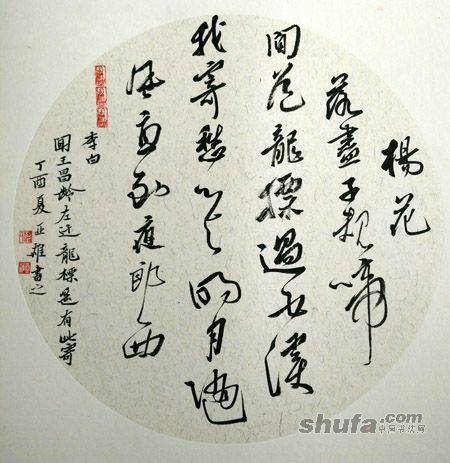 楊花
落盡子規啼
聞道龍標過五溪
我寄愁心与明月随
風直到夜郎西
李白
聞王昌齡左迁龍標遥有此寄
丁酉夏雄書之
shufa.com
中国书法网